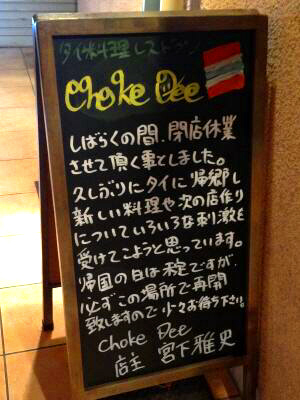 タイ料理レストラン
Choke Dee
しばらくの間、閉店休業
させて頂く事としました。
久しぶりにタイに帰郷し
新しい料理や次の店作り
についていろいろな刺激を
受けてこようと思っています。
帰国の日は未定ですが、
必ずこの場所で再開
致しますので少々お待ち下さい。
Choke Dee
店主 宮下雅史